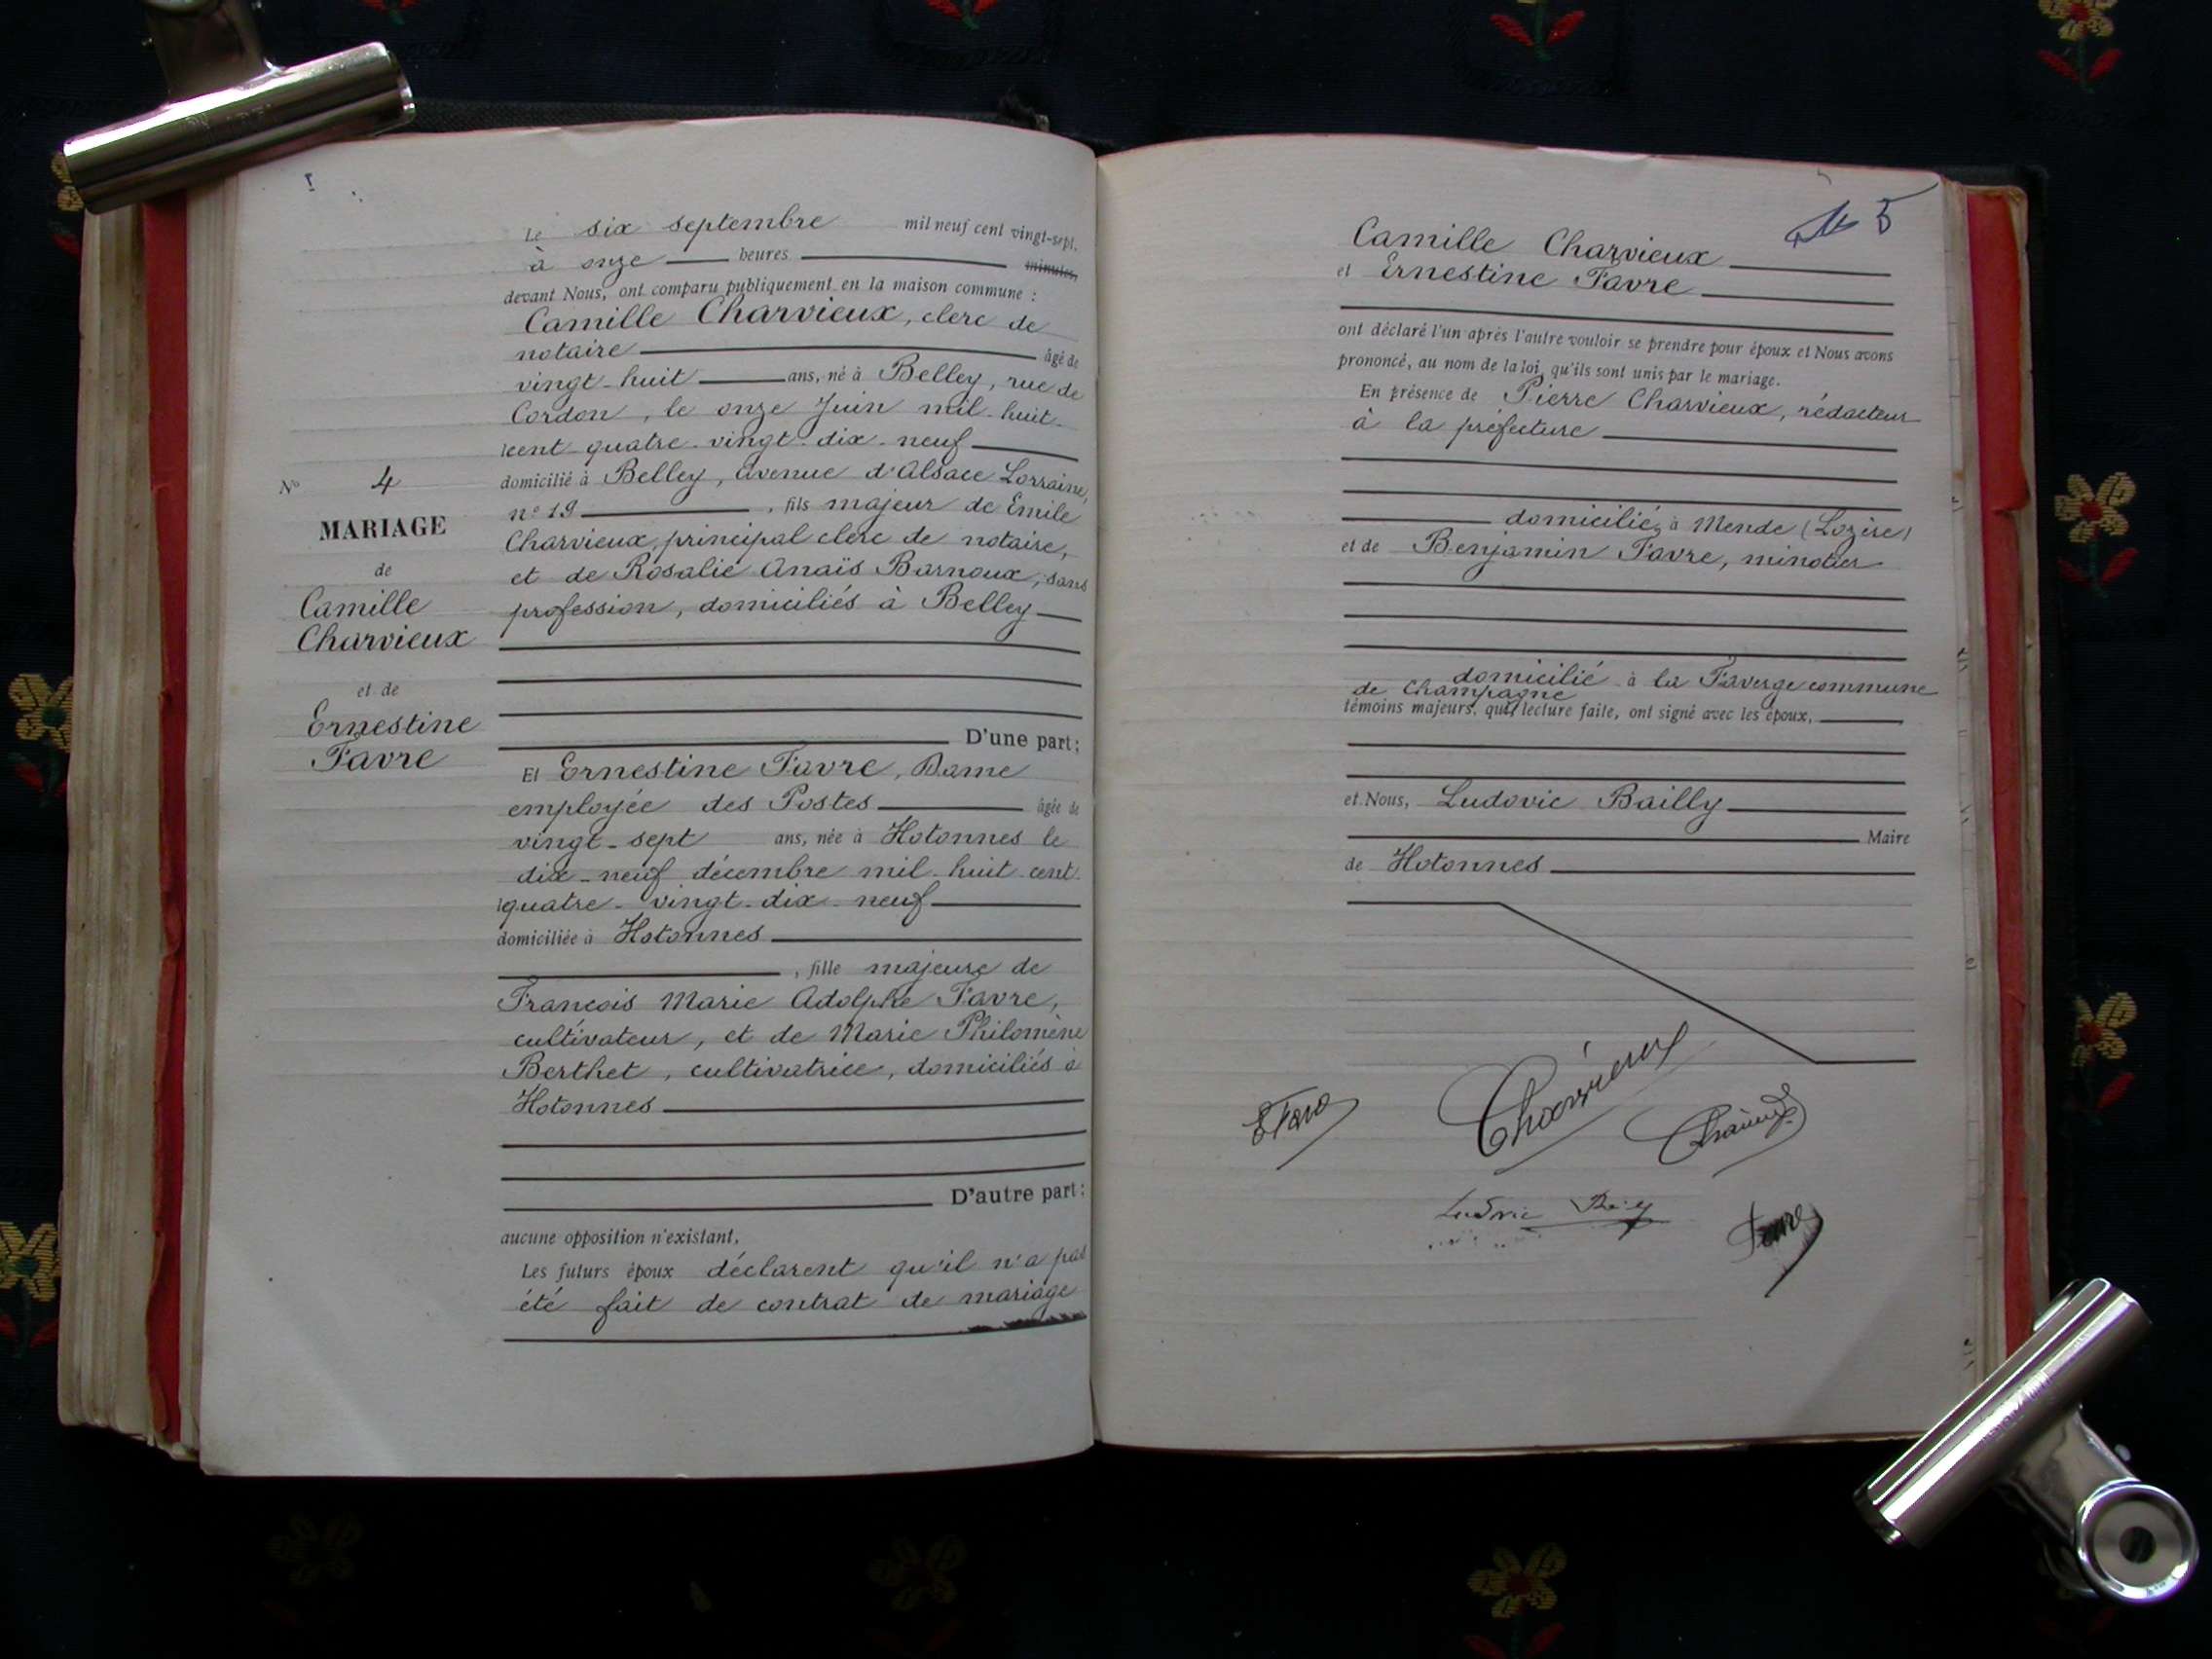 Le six septembre mil neuf cent vingt-sept,
à onze heures minutes,
devant Nous, ont comparu publiquement en la maison commune :
Camille Charvieux, clerc de
notaire âgé de
vingt-huit ans, né à Belley, rue de
Cordon, le onze Juin mil-huit-
cent quatre-vingt-dix-neuf
domicilié à Belley, Avenue d'Alsace Lorraine,
n° 19, fils majeur de Emile
Charvieux, principal clerc de notaire,
et de Rosalie Anaïs Barnoux, sans
profession, domiciliés à Belley
D'une part ;
Et Ernestine Favre, Dame
employée des Postes âgée de
vingt-sept ans, née à Hotonnes le
dix-neuf décembre mil-huit-cent-
quatre-vingt-dix-neuf
domiciliée à Hotonnes
, fille majeure de
François Marie Adolphe Favre,
cultivateur, et de Marie Philomène
Berthet, cultivatrice, domiciliés à
Hotonnes
D'autre part ;
aucune opposition n'existant,
Les futurs époux déclarent qu'il n'a pas
été fait de contrat de mariage
N° 4
MARIAGE
de
Camille
Charvieux
et de
Ernestine
Favre
5
Camille Charvieux
et Ernestine Favre
ont déclaré l'un après l'autre vouloir se prendre pour époux et Nous avons
prononcé, au nom de la loi, qu'ils sont unis par le mariage.
En présence de Pierre Charvieux, rédacteur
à la préfecture
domicilié à Mende (Lozère)
et de Benjamin Favre, minotier
domicilié à la Faverge commune
de Champagne
témoins majeurs, qui, lecture faite, ont signé avec les époux,
et Nous, Ludovic Bailly
Maire
de Hotonnes
E Favre
Charvieux
Ludovic Bailly
Favre